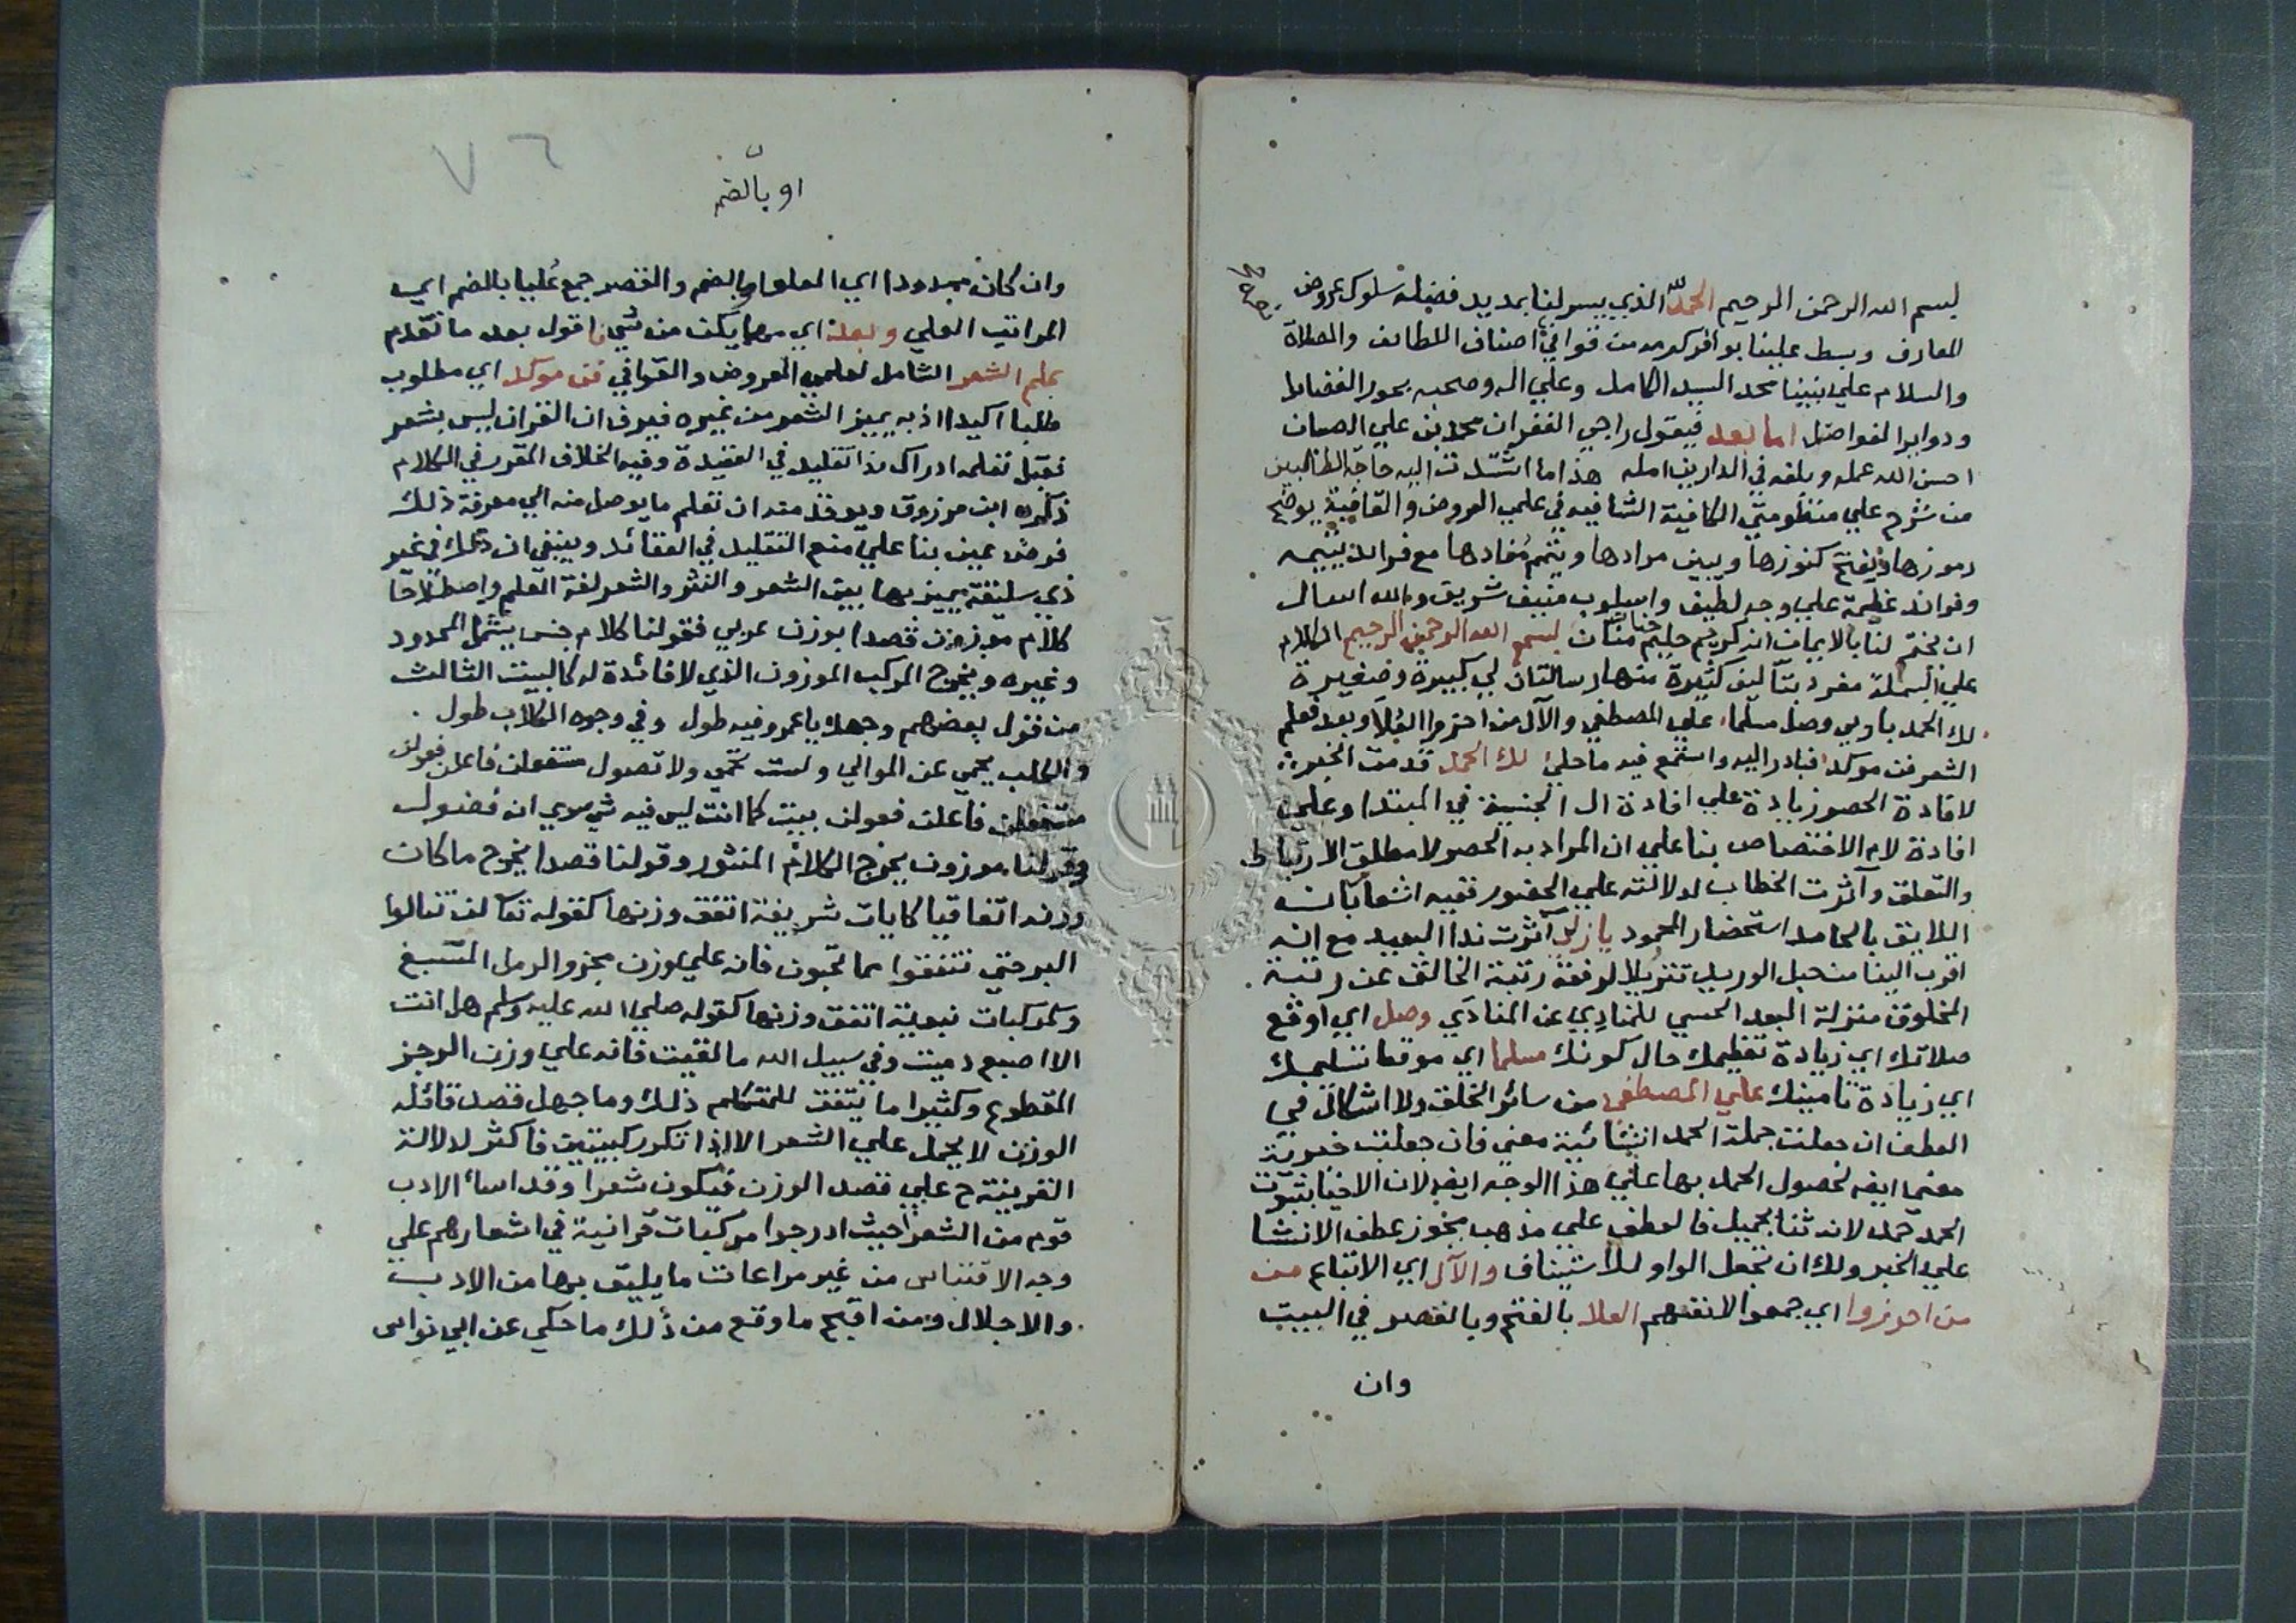 بسم الله الرحمن الرحيم الحمد لله الذي يسر لنا بمديد فضله سلوك عروض
المعارف وبسط علينا بوافر كرمه من قوافي اصناف اللطائف والصلاة
والسلام علي نبينا محمد السيد الكامل وعلي اله وصحبه بحور الفضائل
ودواير الفواضل اما بعد فيقول راجي الغفران محمد بن علي الصبان
احسن الله عمله وبلغه في الدارين امله هذا ما اشتدت اليه حاجة الطالبين
من شرح علي منظومتي الكافية الشافيه في علمي العروض والقافية يوضح
رموزها ويفتح كنوزها ويبين مرادها ويتمم مفادها مع فرائد يتيمه
وفوائد عظيمة علي وجه لطيف واسلوب منيف شريف والله اسال
ان يختم لنا بالايمان انه كريم حليم حنان منان بسم الله الرحمن الرحيم الكلام
علي البسملة مفرد بتآليف كثيرة منها رسالتان لي كبيرة وصغيرة
لك الحمد يا ربي وصل مسلما علي المصطفي والآل من احرزوا العلا وبعد فعلم
الشعر فن موكد فبادر اليه واستمع فيه ما حلي لك الحمد قدمت الخبر
لافادة الحصر زيادة علي افادة ال الجنسية في المبتدا وعلي
افادة لام الاختصاص بنا علي ان المراد به الحصر لا مطلق الارتباط
والتعلق وآثرت الخطاب لدلالته علي الحضور ففيه اشعار بان
اللايق بالحامد استحضار المحمود يا ربي آثرت ندا البعيد مع انه
اقرب الينا من حبل الوريد تنزيلا لرفعة رتبة الخالق عن رتبة
المخلوق منزلة البعد الحسي للمنادي عن المنادَي وصل اي اوقع
صلاتك اي زيادة تعظيمك حال كونك مسلما اي موقعا تسليمك
اي زيادة تامينك علي المصطفي من سائر الخلق ولا اشكال في
العطف ان جعلت جملة الحمد انشائية معني فان جعلت خبرية
معني ايضا لحصول الحمد بها علي هذا الوجه ايضا لان الاخبار بثبوت
الحمد حمد لانه ثنا بجميل فالعطف علي مذهب يجوز عطف الانشا
علي الخبر ولك ان تجعل الواو للاستيناف والآل اي الاتباع من
من احرزوا اي جمعوا لانفسهم العلا بالفتح وبالقصر في البيت
وان
او بالضم
وان كان ممدودا اي المعلو او بالضم والقصر جمع عُليا بالضم اي
المراتب العلي وبعد اي مهما يكن من شي فاقول بعد ما تقدم
علم الشعر الشامل لعلمي العروض والقوافي فن موكد اي مطلوب
طلبا اكيدا اذ به يميز الشعر من غيره فيعرف ان القران ليس بشعر
فقيل تعلمه ادراك ذا تقليد في العقيدة وفيه الخلاف المقرر في الكلام
ذكره ابن مرزوق ويوخذ منه ان تعلم ما يوصل منه الي معرفة ذلك
فرض عين بنا علي منع التقليد في العقائد وينبغي ان ذلك في غير
ذي سليقة يميز بها بين الشعر والنثر والشعر لغة العلم واصطلاحا
كلام موزون قصدا بوزن عربي فقولنا كلام جنس يشمل المحدود
وغيره ويخرج المركب الموزون الذي لا فائدة له كالبيت الثالث
من قول بعضهم وجهك يا عمرو فيه طول وفي وجوه الكلاب طول
والكلب يحمي عن الموالي ولست تحمي ولا تصول مستفعلن فاعلن فعولن
مستفعلن فاعلن فعولن بيت كما انت ليس فيه شي سوي انه فضول
وقولنا موزون يخرج الكلام المنثور وقولنا قصدا يخرج ما كان
وزنه اتفاقيا كايات شريفة اتفق وزنها كقوله تعالي لن تنالوا
البر حتي تنفقوا مما تحبون فانه علي وزن مجزو الرمل المسبغ
وكمركبات نبوية اتفق وزنها كقوله صلي الله عليه وسلم هل انت
الا اصبع دميت وفي سبيل الله ما لقيت فانه علي وزن الرجز
المقطوع وكثيرا ما يتفق للمتكلم ذلك وما جهل قصد قائله
الوزن لا يحمل علي الشعر الا اذا تكرر كبيتين فاكثر لدلالة
القرينة ح علي قصد الوزن فيكون شعرا وقد اساء الادب
قوم من الشعرا حيث ادرجوا مركبات قرانية في اشعارهم علي
وجه الاقتباس من غير مراعات ما يليق بها من الادب
والاجلال ومن اقبح ما وقع من ذلك ما حكي عن ابي نواس